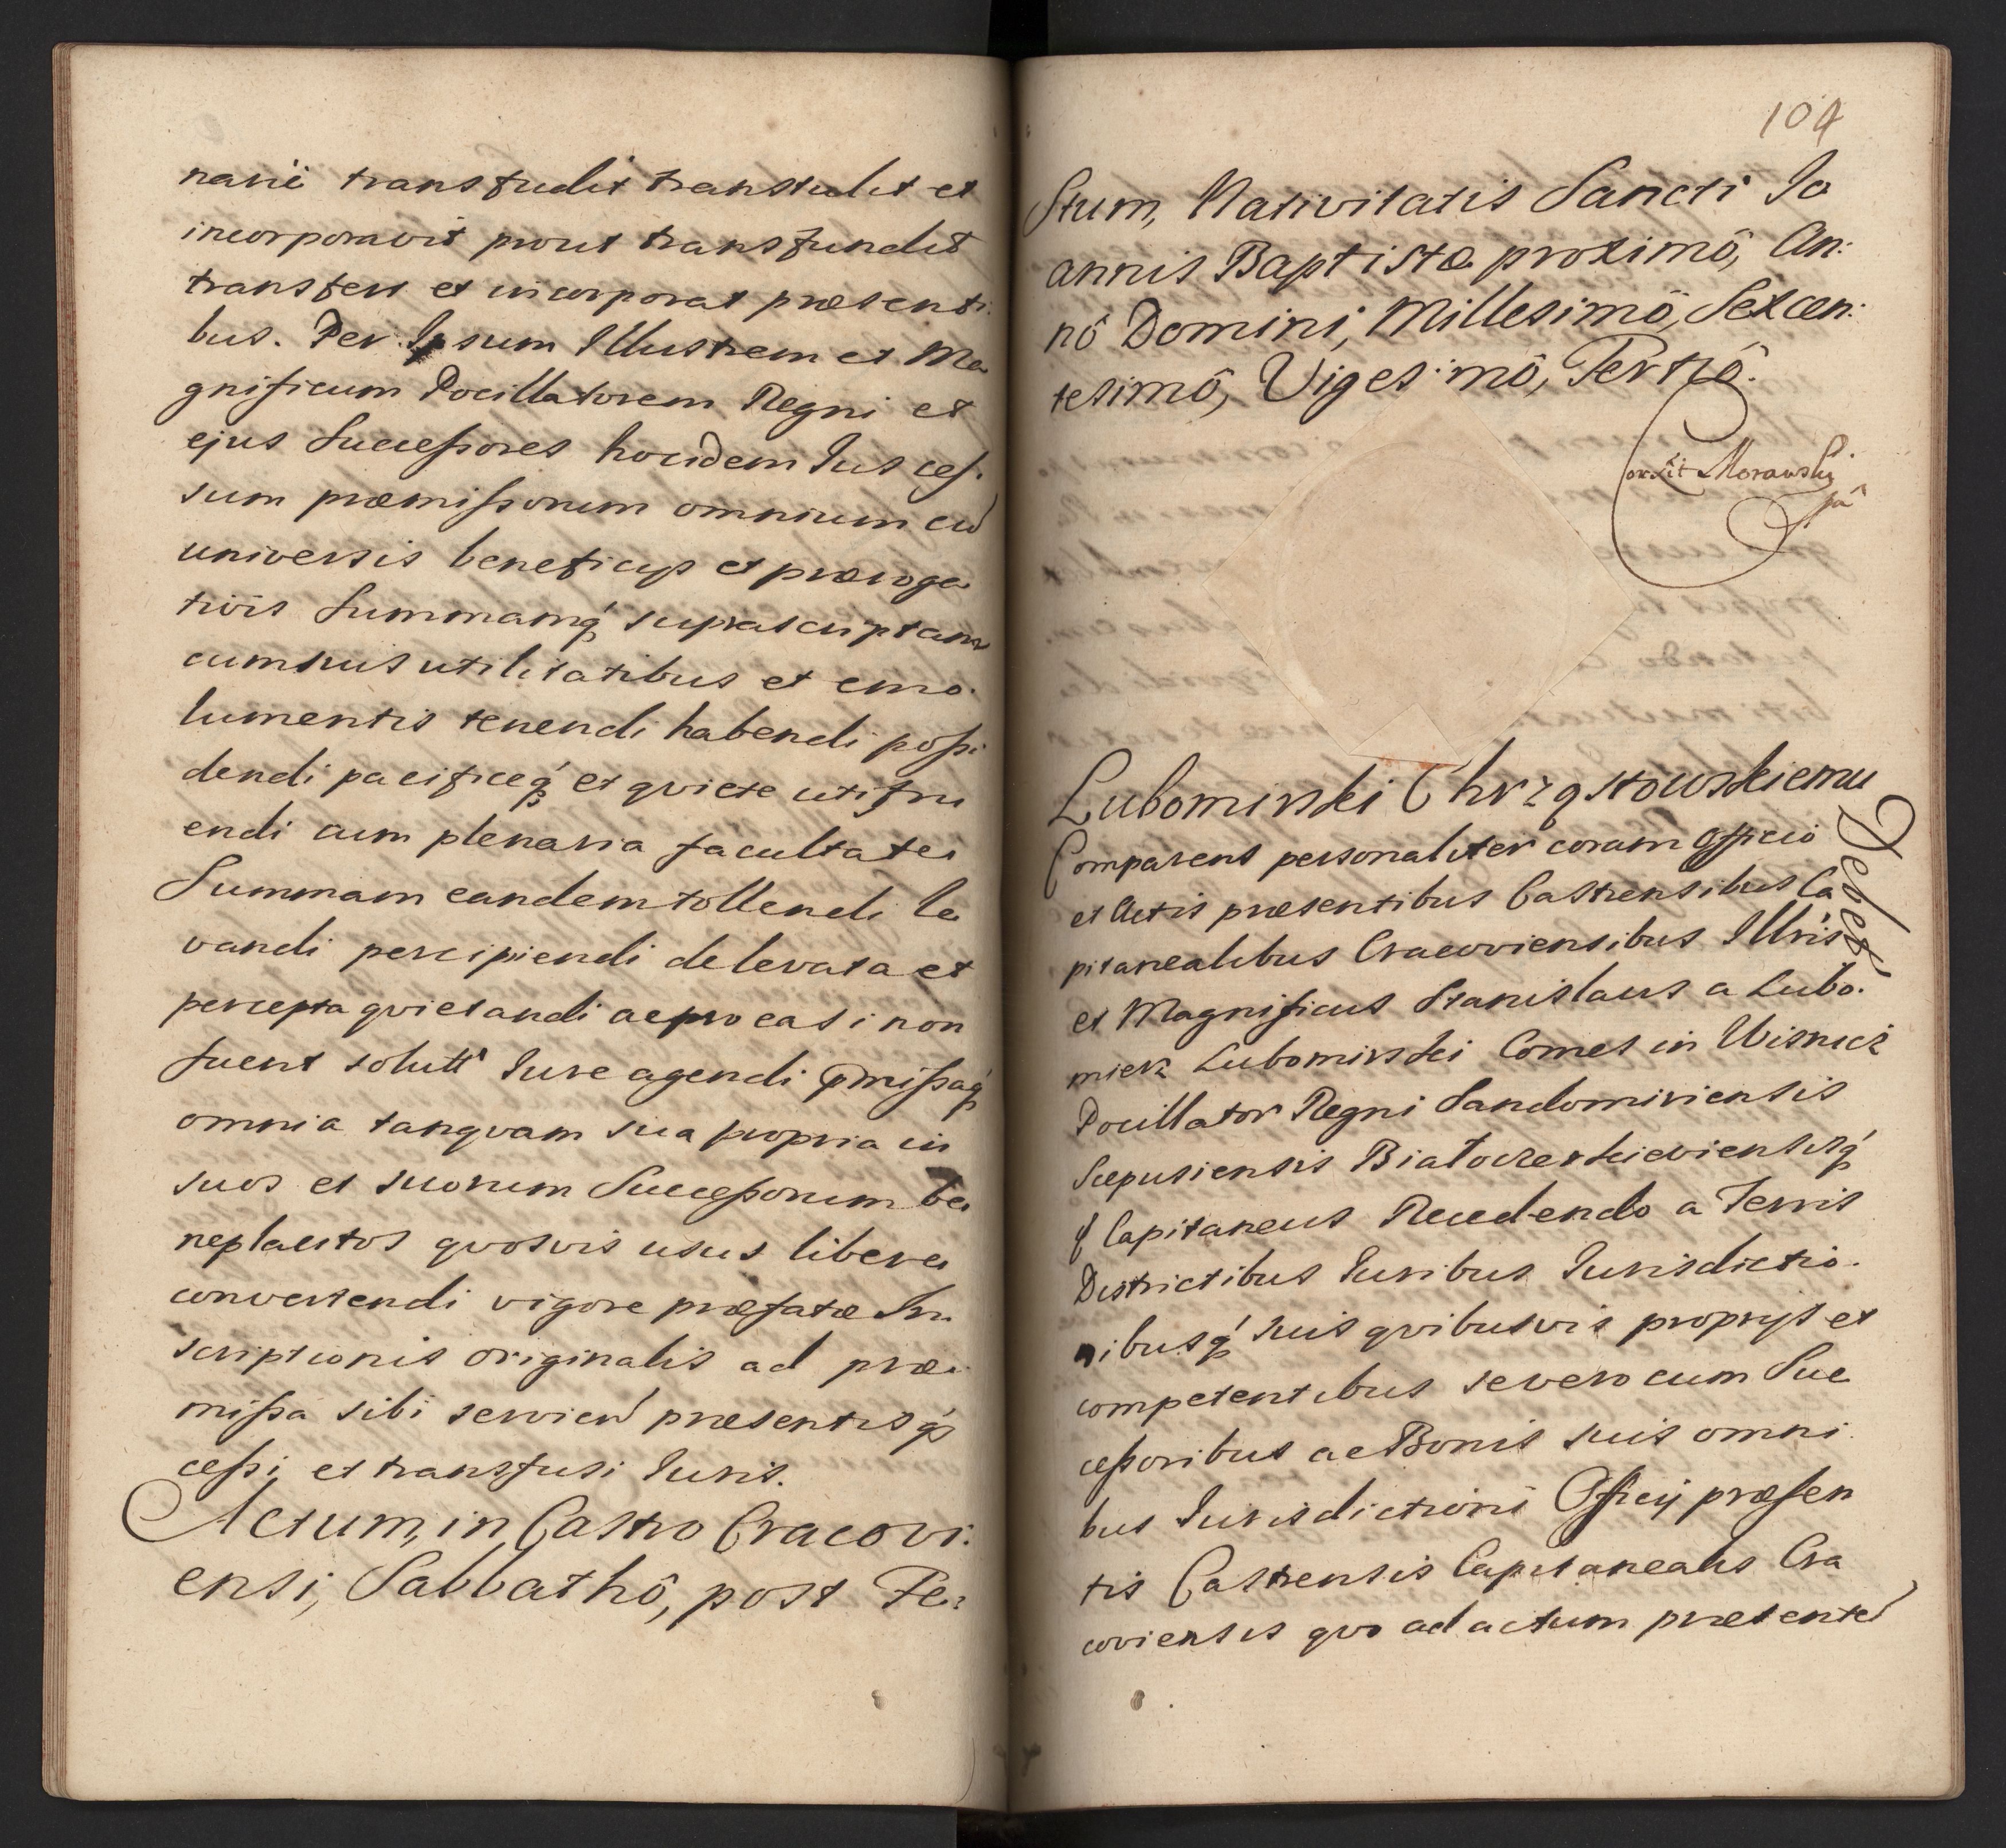 narie transfudit transtulit et
incorporavit prout transfundit
transfert et incorporat præsenti
bus. Per Ipsum Illustrem et Ma
gnificum Pocillatorem Regni et
ejus Successores hocidem Jus ces.
sum præmissorum omnium cu
universis beneficijs et præroga
tivis Summamq suprascriptam
cum suis utilitatibus et emo.
lumentis tenendi habendi possi
dendi pacificeq et qviete uti fru
endi cum plenaria facultate
Summam eandem tollendi le
vandi percipiendi de levata et
percepta qvietandi ac pro ea si non
fuerit solutt Jure agendi pmissaq
omnia tanqvam sua propria in
suos et suorum Successorum be
neplacitos qvosvis usus libere
convertendi vigore præfatæ In
scriptionis originalis ad præ
missa sibi servien præsentisq
cessi et transfusi Juris.
Actum, in Castro Cracovi:
ensi, Sabbathô, post Fe:
104
stum, Nativitatis Sancti Jo
annis Baptistæ proximô, An:
nô Domini, Millesimô, Sexcen:
tesimô, Vigesimô, Tertiô.
Corxit Morawski
Lubomirski Chrząstowskiemu
Debet
Comparens personaliter coram Officio
et Actis præsentibus Castrensibus Ca
pitanealibus Cracoviensibus Illris
et Magnificus Stanislaus a Lubo.
mierz Lubomirski Comes in Wisnicz
Pocillator Regni Sandomiriensis
Scepusiensis Białocerkieviensisq
Capitaneus Recedendo a Terris
Districtibus Juribus Jurisdictio.
nibusq suis qvibusvis proprijs et
competentibus se vero cum Suc
cessoribus ac Bonis suis omni
bus Jurisdictioni Officij præsen
tis Castrensis Capitanealis Cra
coviensis qvo ad actum præsente